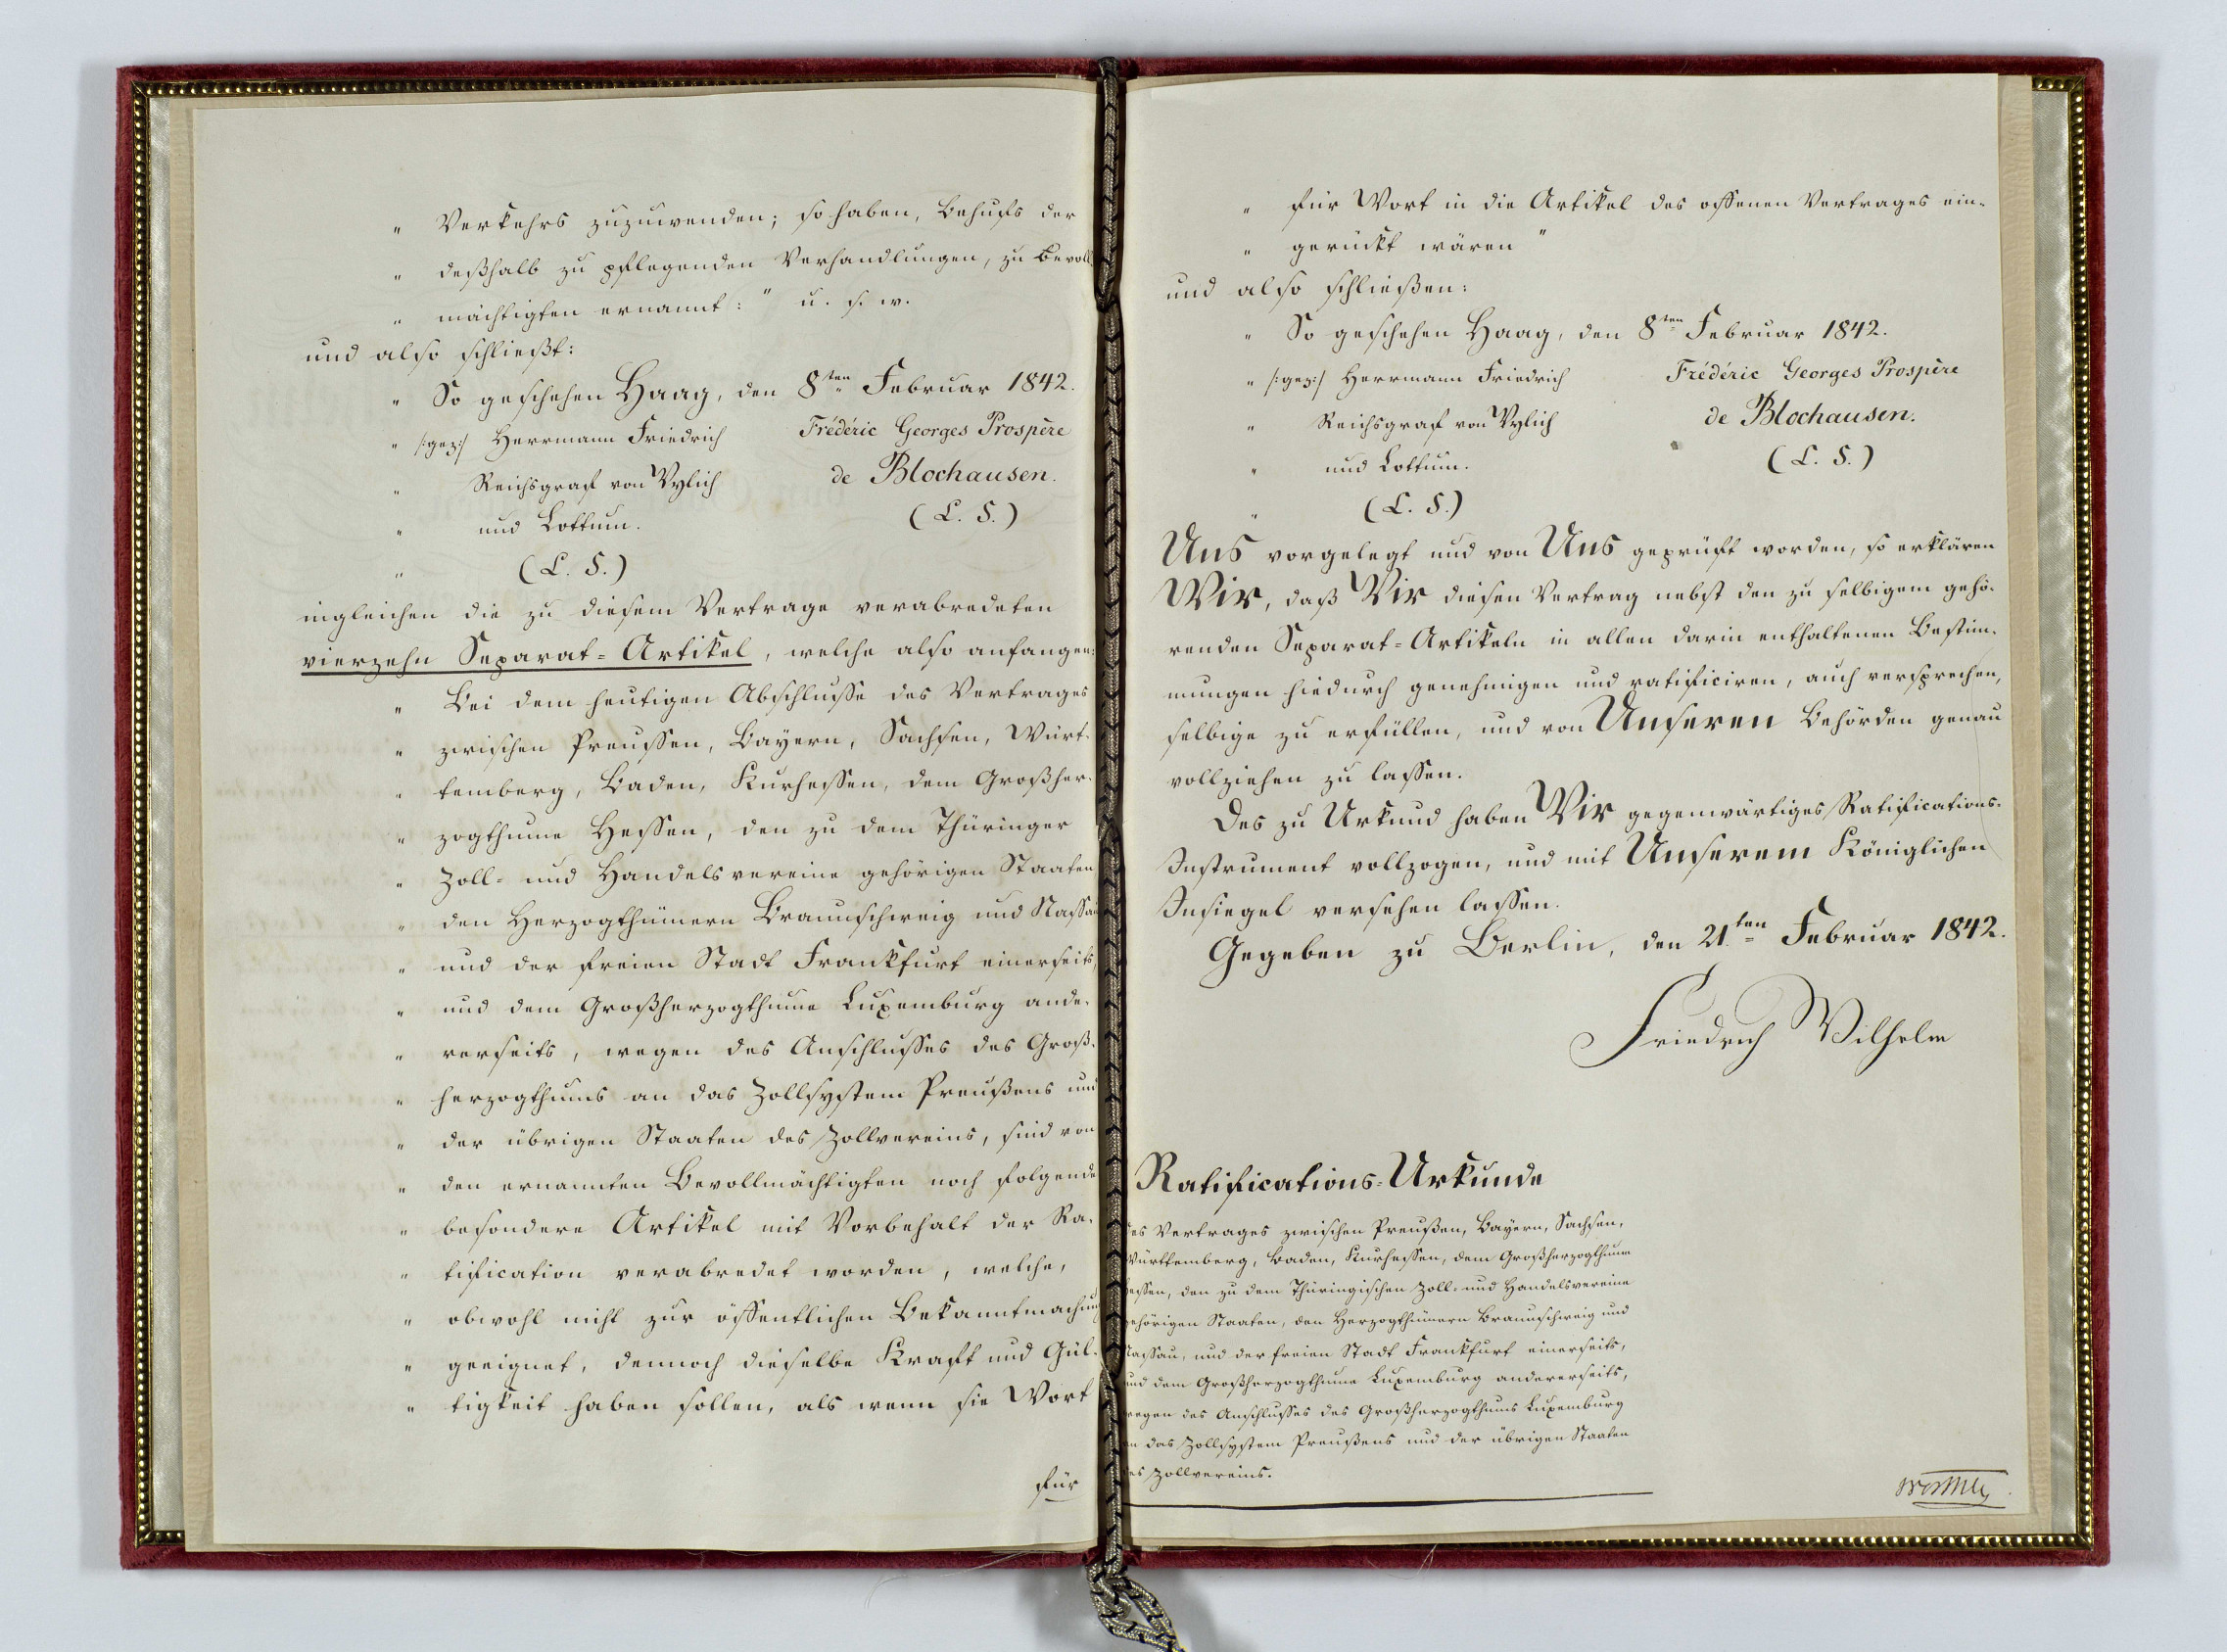 " Verkehrs zuzuwenden; so haben, behufs der
" deßhalb zu pflegenden Verhandlungen, zu Bevoll-
" mächtigten ernannt:" u. s. w.
und also schließt:
" So geschehen Haag, den 8ten Februar 1842.
" /:gez:/ Herrmann Friedrich Frédéric Georges Prospère
" Reichsgraf von Wylich de Blochausen.
" und Lottum. (L. S.)
" (L. S.)
ingleichen die zu diesem Vertrage verabredeten
vierzehn Separat-Artikel, welche also anfangen:
" Bei dem heutigen Abschlusse des Vertrages
" zwischen Preussen, Bayern, Sachsen, Würt-
" temberg, Baden, Kurhessen, dem Großher-
" zogthume Hessen, den zu dem Thüringer
" Zoll- und Handelsvereine gehörigen Staaten
" den Herzogthümern Braunschweig und Nassau
" und der freien Stadt Frankfurt einerseits,
" und dem Großherzogthume Luxemburg ande-
" rerseits, wegen des Anschlusses des Groß-
" herzogthums an das Zollsystem Preußens und
" der übrigen Staaten des Zollvereins, sind von
" den ernannten Bevollmächtigten noch folgende
" besondere Artikel mit Vorbehalt der Ra-
" tification verabredet worden, welche,
" obwohl nicht zur öffentlichen Bekanntmachung
" geeignet, dennoch dieselbe Kraft und Gül-
" tigkeit haben sollen, als wenn sie Wort
für
" für Wort in die Artikel des offenen Vertrages ein-
" gerückt wären"
und also schließen:
" So geschehen Haag, den 8ten Februar 1842.
" /:gez:/ Herrmann Friedrich Frédéric Georges Prospère
" Reichsgraf von Wylich de Blochausen.
" und Lottum. (L. S.)
" (L. S.)
Uns vorgelegt und von Uns geprüft worden, so erklären
Wir, daß Wir diesen Vertrag nebst den zu selbigem gehö-
renden Separat-Artikeln in allen darin enthaltenen Bestim-
mungen hiedurch genehmigen und ratificiren, auch versprechen,
selbige zu erfüllen, und von Unseren Behörden genau
vollziehen zu lassen.
Des zu Urkund haben Wir gegenwärtiges Ratifications-
Instrument vollzogen, und mit Unserem Königlichen
Insiegel versehen lassen.
Gegeben zu Berlin, den 21.ten Februar 1842.
Friedrich Wilhelm
Ratifications-Urkunde
des Vertrages zwischen Preußen, Bayern, Sachsen,
Württemberg, Baden, Kurhessen, dem Großherzogthume
Hessen, den zu dem Thüringischen Zoll- und Handelsvereine
gehörigen Staaten, den Herzogthümern Braunschweig und
Nassau, und der freien Stadt Frankfurt einerseits,
und dem Großherzogthume Luxemburg andererseits,
wegen des Anschlusses des Großherzogthums Luxemburg
an das Zollsystem Preußens und der übrigen Staaten
des Zollvereins.